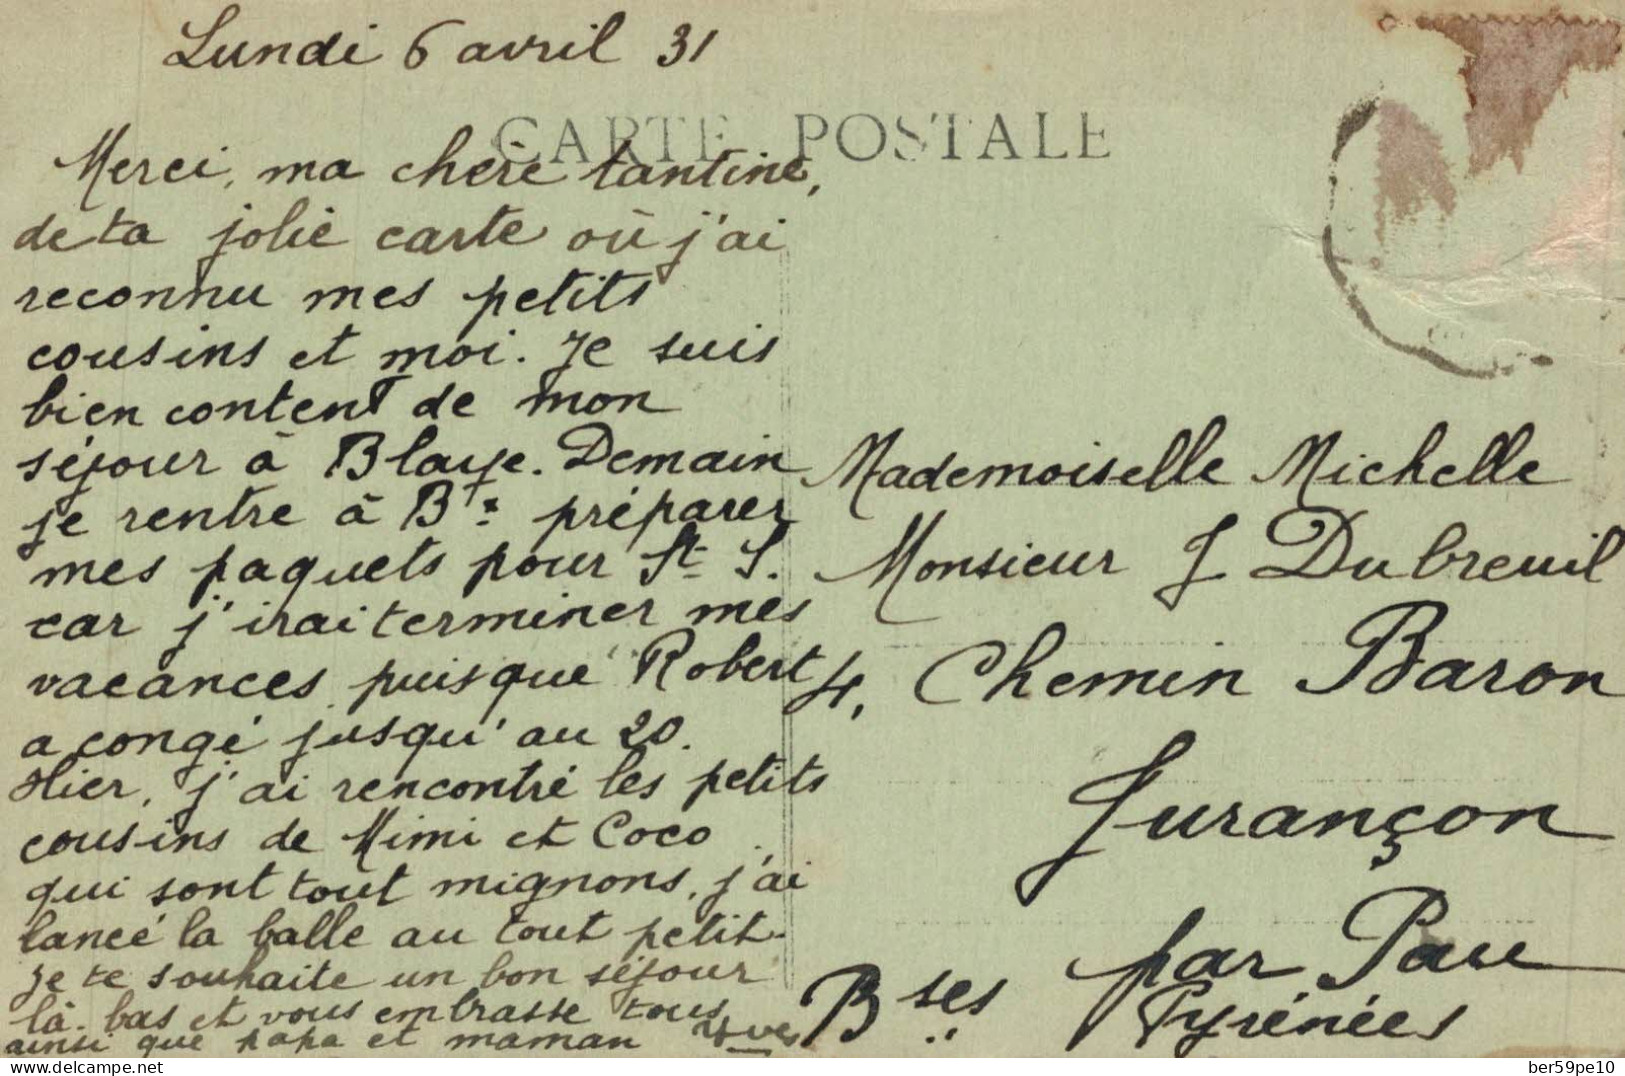 Lundi 6 avril 31
CARTE POSTALE
Merci, ma chère tantine,
de ta jolie carte où j'ai
reconnu mes petits
cousins et moi. Je suis
bien content de mon
séjour à Blaye. Demain
je rentre à Bx préparer
mes paquets pour St S.
car j'irai terminer mes
vacances puisque Robert
a congé jusqu'au 20.
Hier, j'ai rencontré les petits
cousins de Mimi et Coco
qui sont tout mignons, j'ai
lancé la balle au tout petit.
Je te souhaite un bon séjour
là-bas et vous embrasse tous
ainsi que papa et maman
Mademoiselle Michelle
Monsieur J Dubreuil
4, Chemin Baron
Jurançon
par Pau
Bses Pyrénées
delcampe.net
ber59pe10